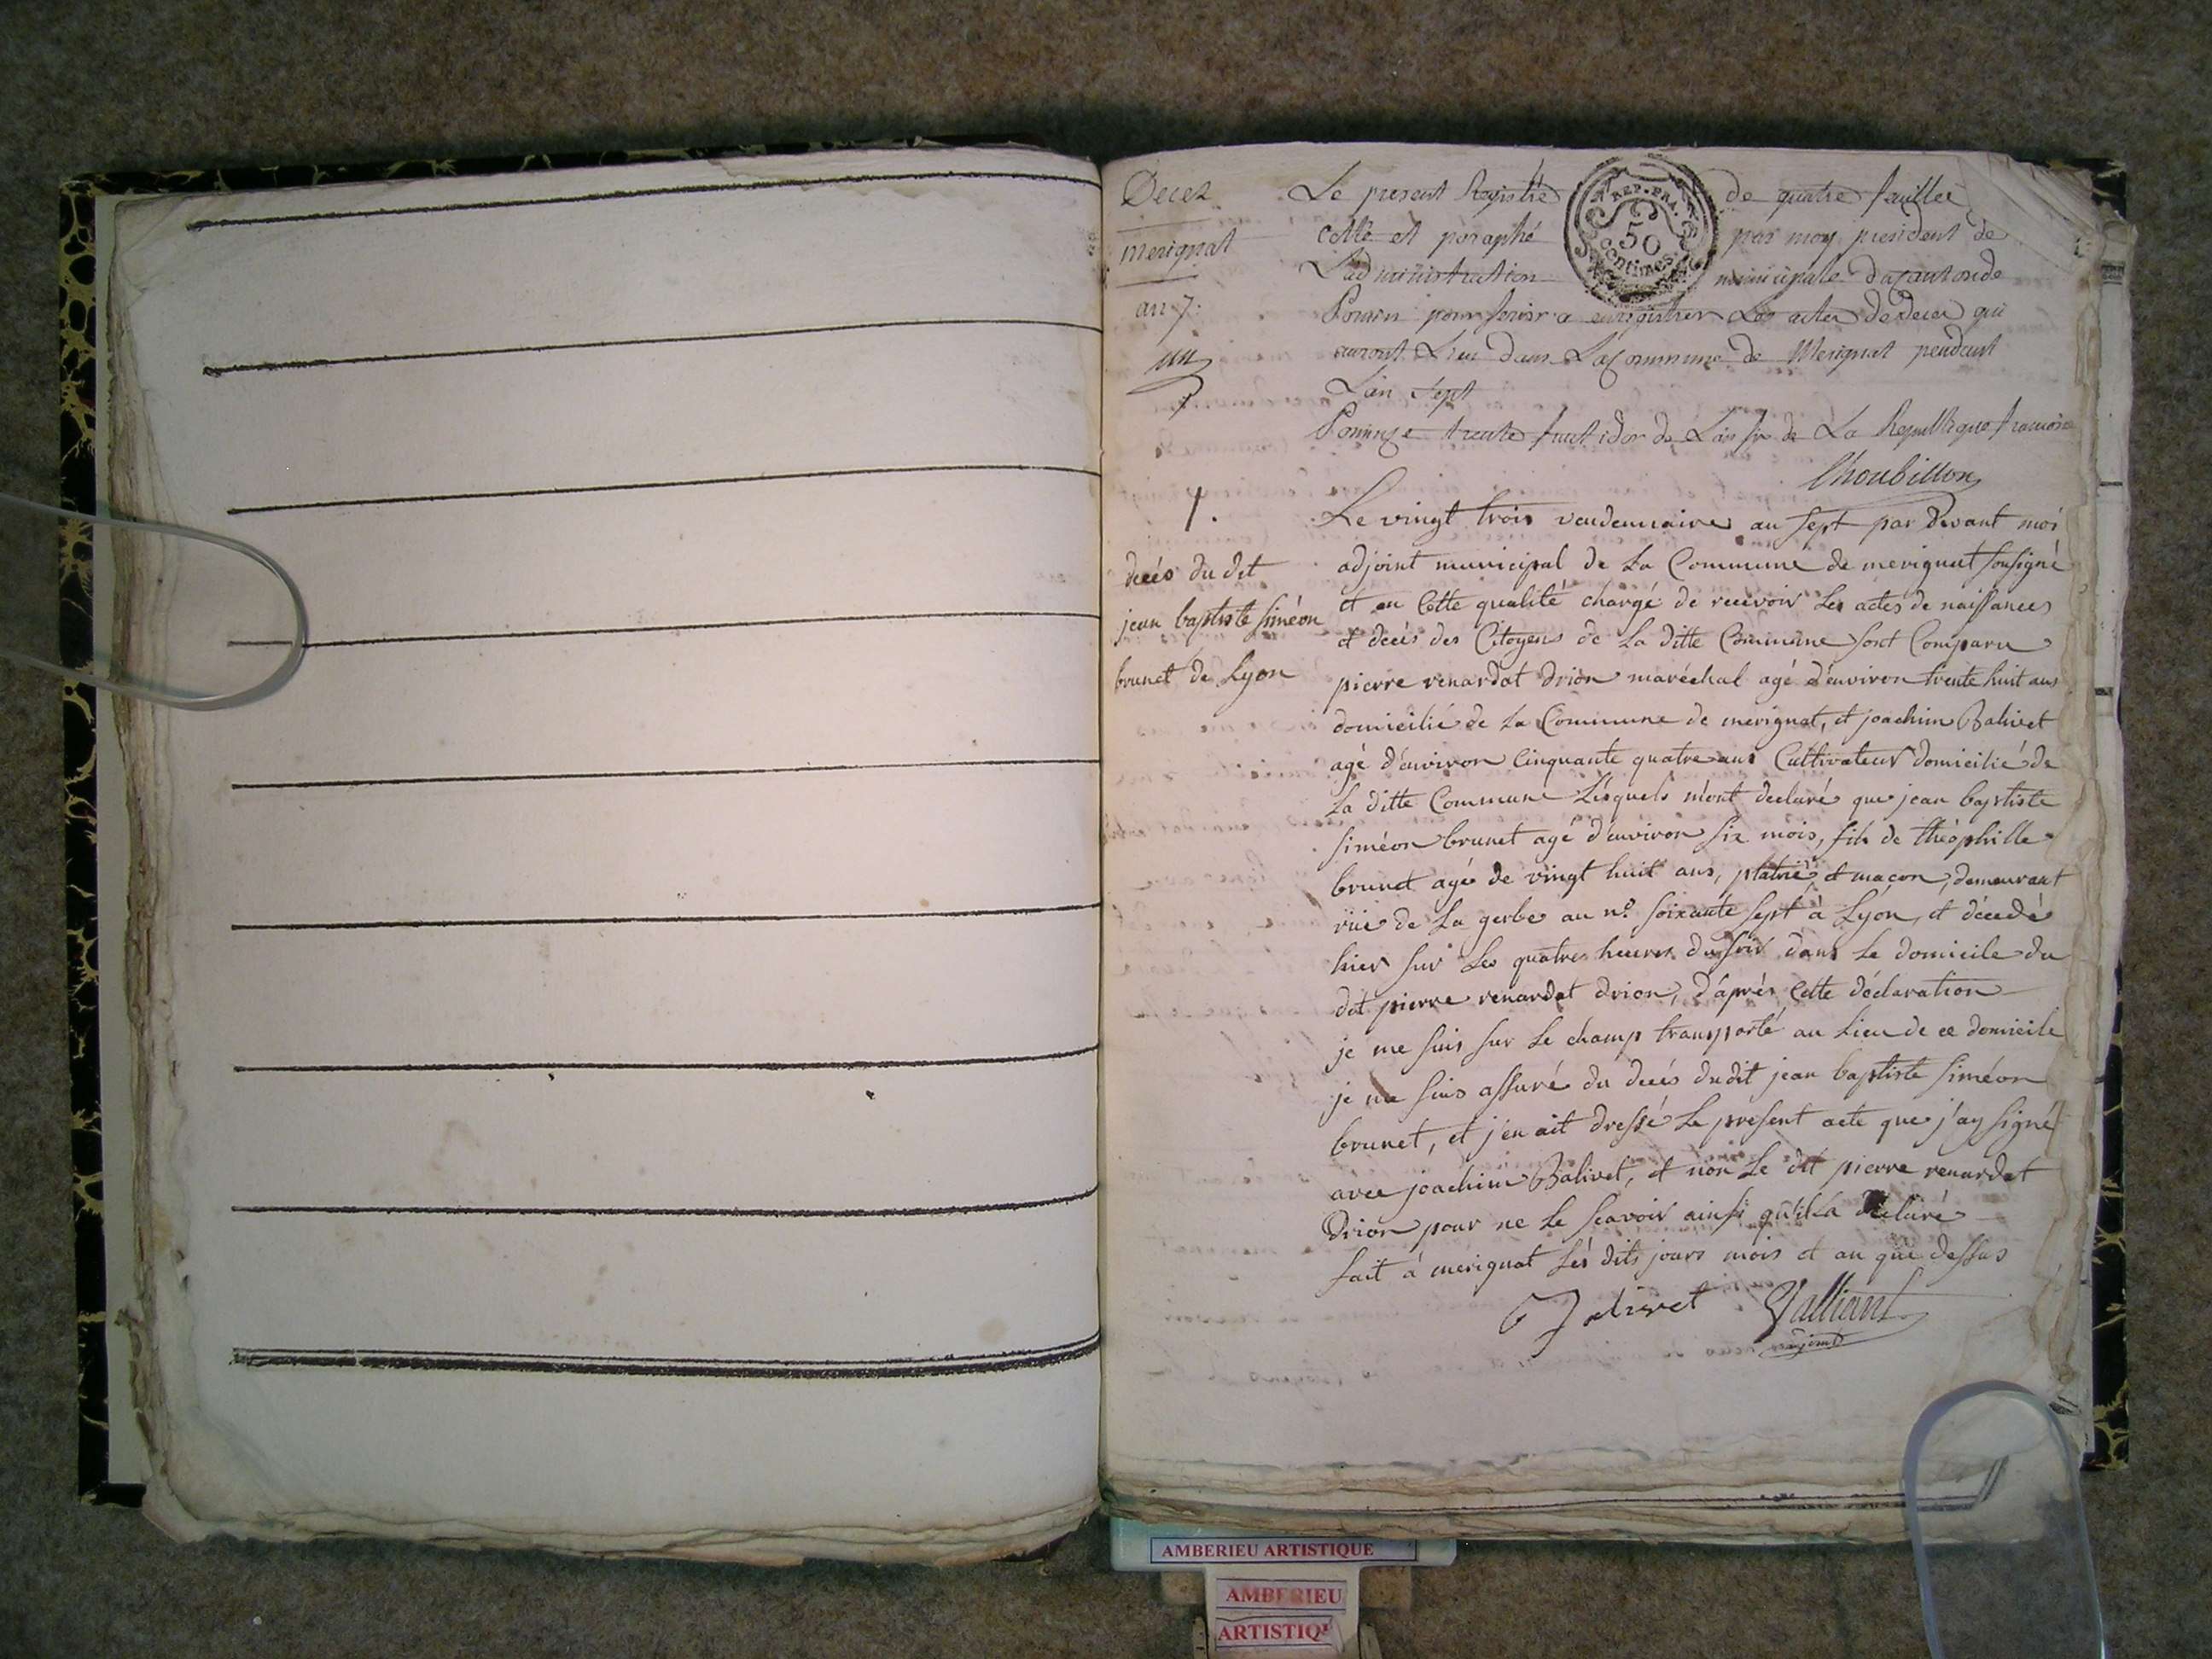 Decez
merignat
an 7.
un
Le present Registre de quatre feuillet
cotté et paraphé par moy president de
L'administration municipale du canton de
Poncin pour servir a enregistrer Les actes de decez qui
auront Lieu dans La Commune de Merignat pendant
L'an sept
Poncin le trente fructidor de L'an six de La Republique francaise
REP. FRA.
50
centimes
1.
decés du dit
jean baptiste siméon
brunet de Lyon
Le vingt trois vendemiaire an sept par devant moi
adjoint municipal de La Commune de merignat sousigné
et en Cette qualité chargé de recevoir Les actes de naissances
et decés des Citoyens de La ditte Commune sont Comparu
pierre renardat drion maréchal agé d'environ trente huit ans
domicilié de La Commune de merignat, et joachim Balivet
agé d'environ Cinquante quatre ans Cultivateur domicilié de
La ditte Commune Lésquels m'ont declaré que jean baptiste
siméon brunet agé d'environ six mois, fils de théophille
brunet agé de vingt huit ans, platrié et macon, demeurant
rüe de La gerbe au n.o soixante sept à Lyon, et décedé
hier sur Les quatres heures du soir dans Le domicile du
dit pierre renardat drion, d'après Cette déclaration
je me suis sur Le champ transporté au Lieu de ce domicile
je me suis assuré du decés dudit jean baptiste siméon
brunet, et j'en ait dressé Le present acte que j'ay signé
avec joachim Balivet, et non Le dit pierre renardat
Drion pour ne Le scavoir ainsi qu'il La déclaré
fait à merignat Lés dits jours mois et an que dessus
Balivet Valliant
adjoint
AMBERIEU ARTISTIQUE
AMBERIEU
ARTISTIQ